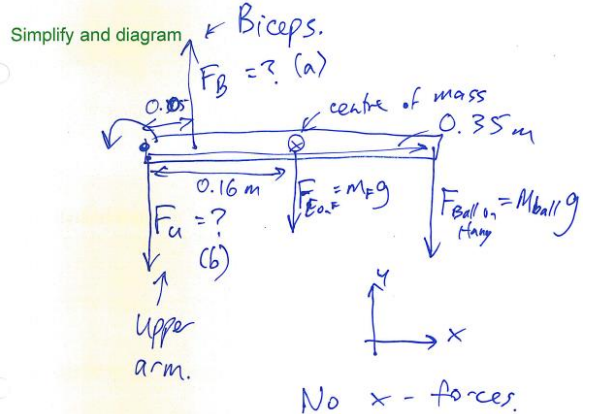 Simplify and diagram
Biceps.
F_B = ? (a)
centre of mass
0.35 m
0.16 m
= M_F g
F_Ball on = M_ball g
F_u = ?
(b)
upper
arm.
y
x
No x - forces.